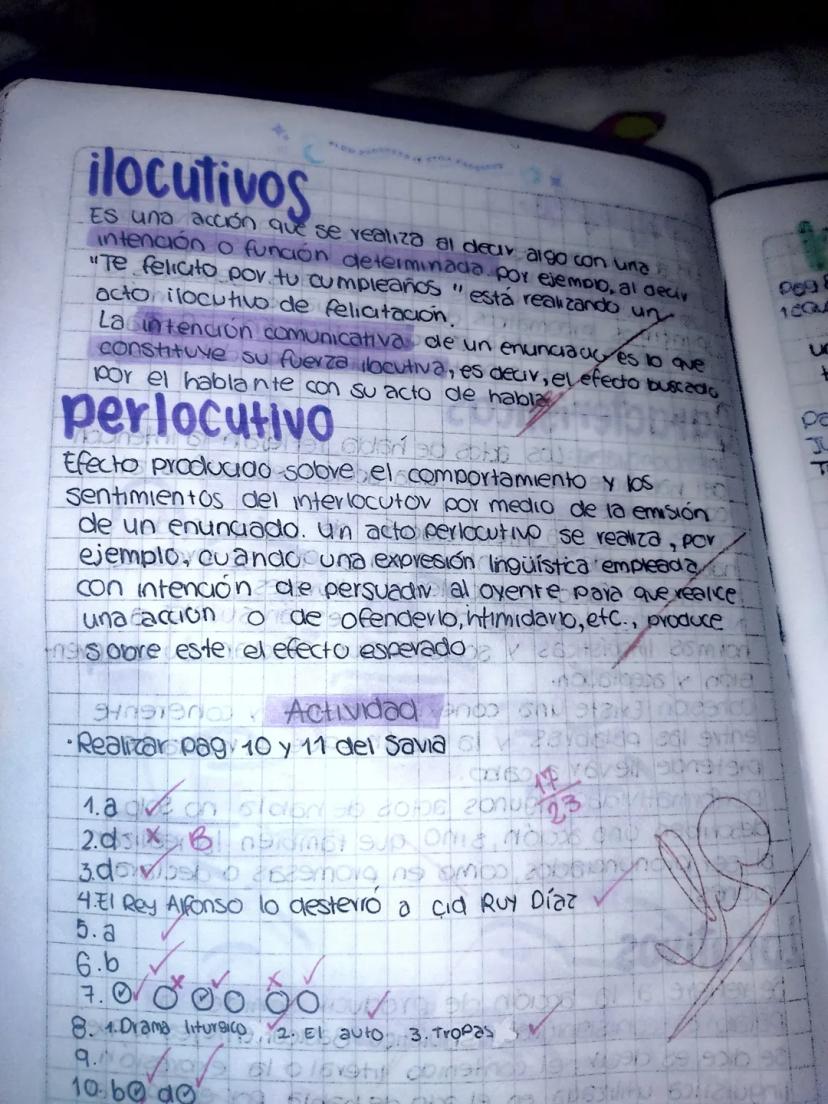 ilocutivos
Es una acción que se realiza al decir algo con una
intención o función determinada. por ejemplo, al decir
"Te felicito por tu cumpleaños" está realizando un
acto ilocutivo de felicitación.
La intención comunicativa de un enunciado es lo que
constituye su fuerza ilocutiva, es decir, el efecto buscado
por el hablante con su acto de habla
perlocutivo
Efecto producido sobre el comportamiento y los
sentimientos del interlocutor por medio de la emisión
de un enunciado. un acto perlocutivo se realiza, por
ejemplo, cuando una expresión lingüística empleada
con intención de persuadir al oyente para que realice
una acción o de ofenderlo, intimidarlo, etc., produce
sobre este el efecto esperado
Actividad
• Realizar pag 10 y 11 del Savia
17
23
1. a
2. d x B
3. d
4. El Rey Alfonso lo desterró a cid Ruy Díaz
5. a
6. b
7.
8. 1. Drama liturgico 2. El auto 3. Tropas
9.
10. b d